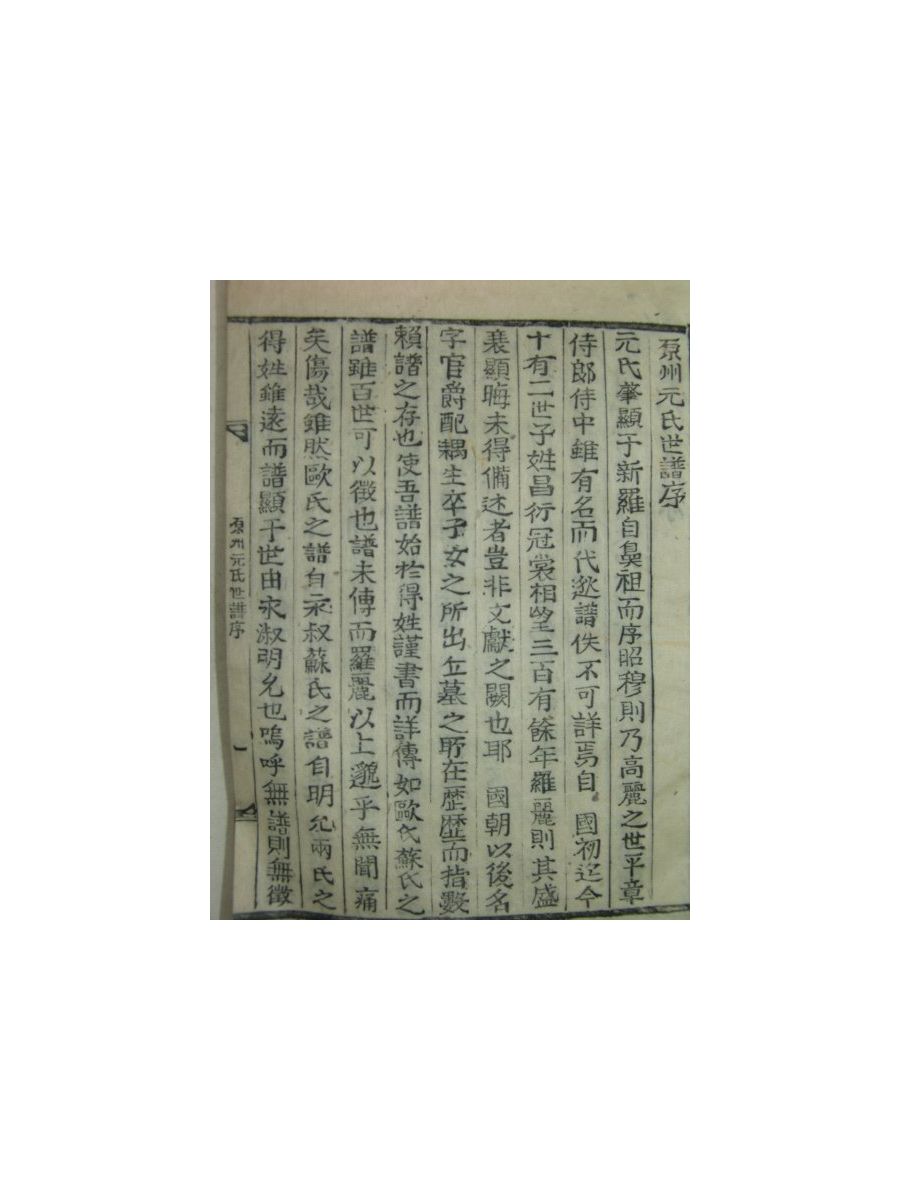 原州元氏世譜序
元氏肇顯于新羅自鼻祖而序昭穆則乃高麗之世平章
侍郎侍中雖有名而代逖譜佚不可詳焉自 國初迄今
十有二世子姓昌衍冠裳相望三百有餘年羅麗則其盛
衰顯晦未得備述者豈非文獻之闕也耶 國朝以後名
字官爵配耦生卒子女之所出丘墓之所在歷歷而指數
賴譜之存也使吾譜始於得姓謹書而詳傳如歐氏蘇氏之
譜雖百世可以徵也譜未傳而羅麗以上邈乎無聞痛
矣傷哉雖然歐氏之譜自永叔蘇氏之譜自明允兩氏之
得姓雖遠而譜顯于世由永淑明允也嗚呼無譜則無徵
原州元氏世譜序 一